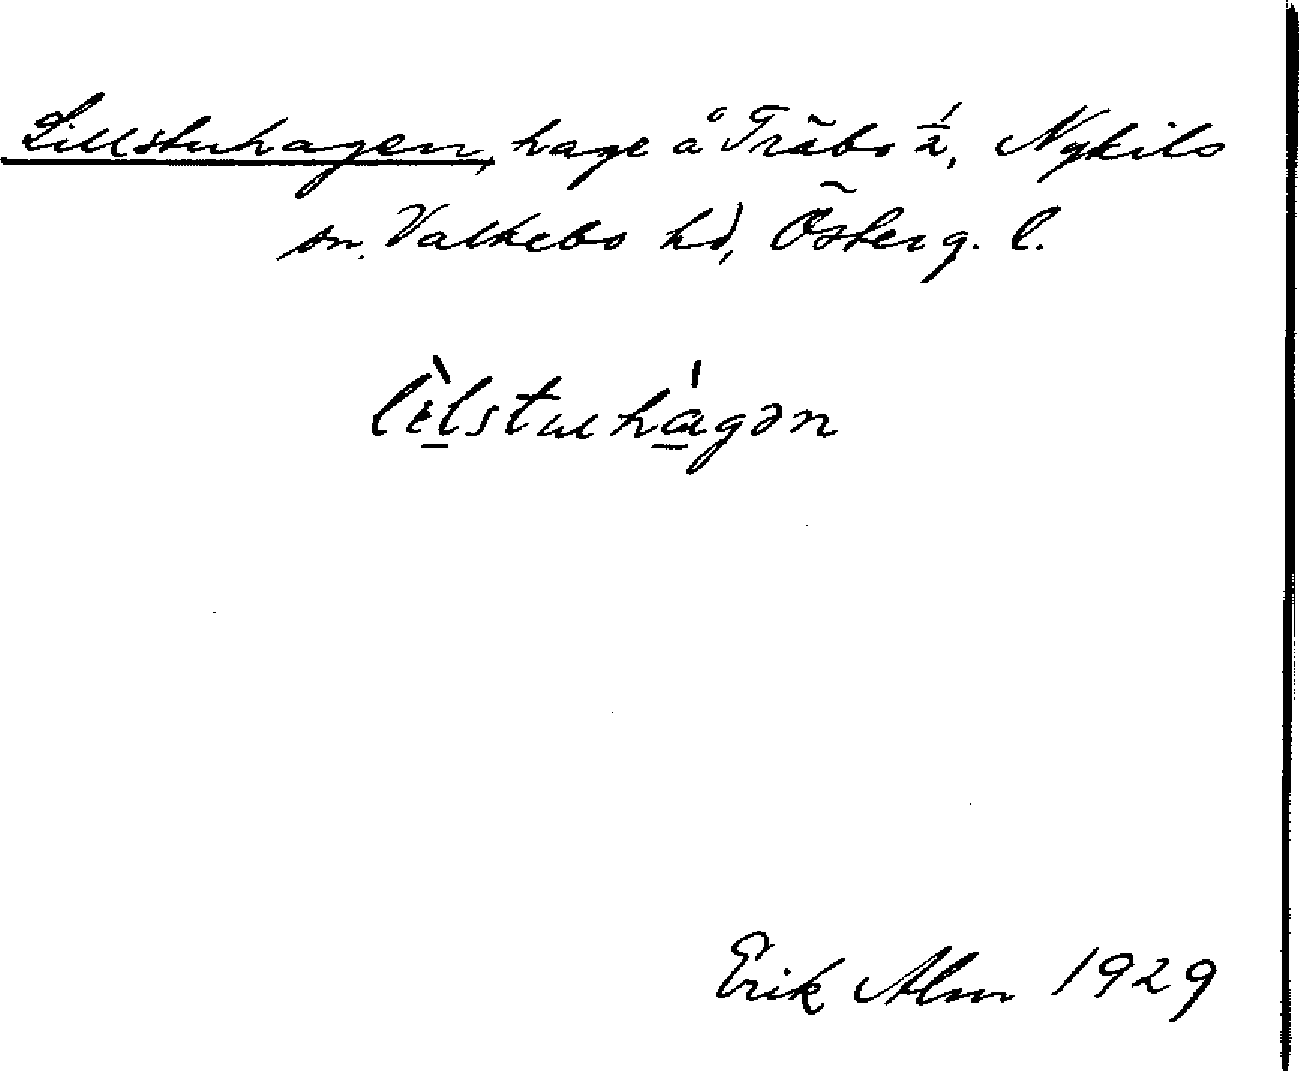 Lillstuhagen, hage å Träbo 1/2, Nykils
sn. Valkebo hd, Österg. l.
lèlstuhágən
Erik Alm 1929